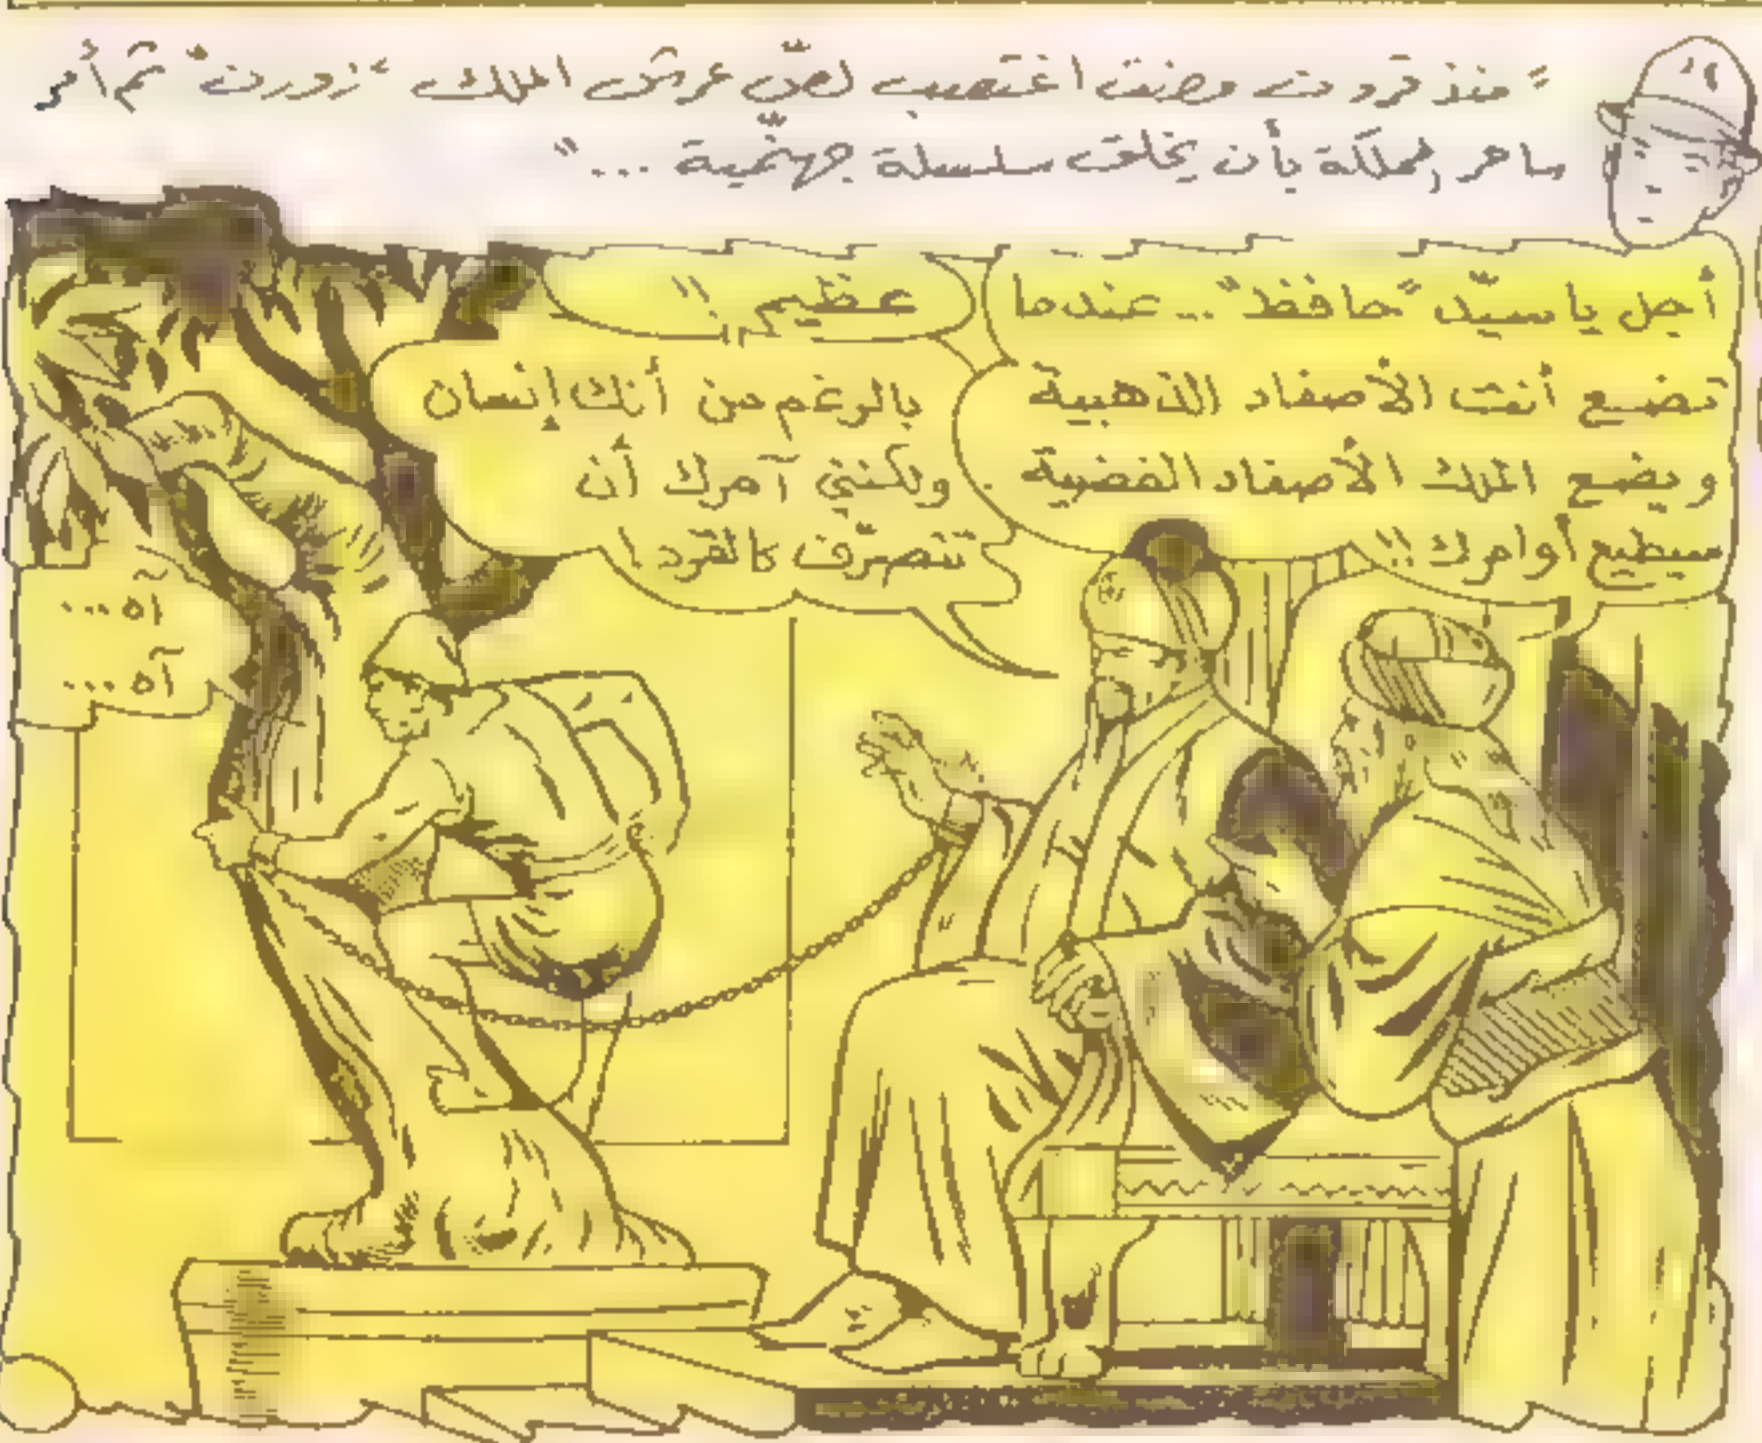 "منذ قرون مضت اغتصب لصّ عرش الملك "زورن" ثم أمر
ساحر المملكة بأن يخلق سلسلة جهنّمية ..."
أجل يا سيّد "حافظ".. عندما
تضع أنت الأصفاد الذهبية
ويضع الملك الأصفاد الفضية
سيطيع أوامرك!!
عظيم!!
بالرغم من أنك إنسان
ولكنني آمرك أن
تتصرّف كالقرد!
آه...
آه...